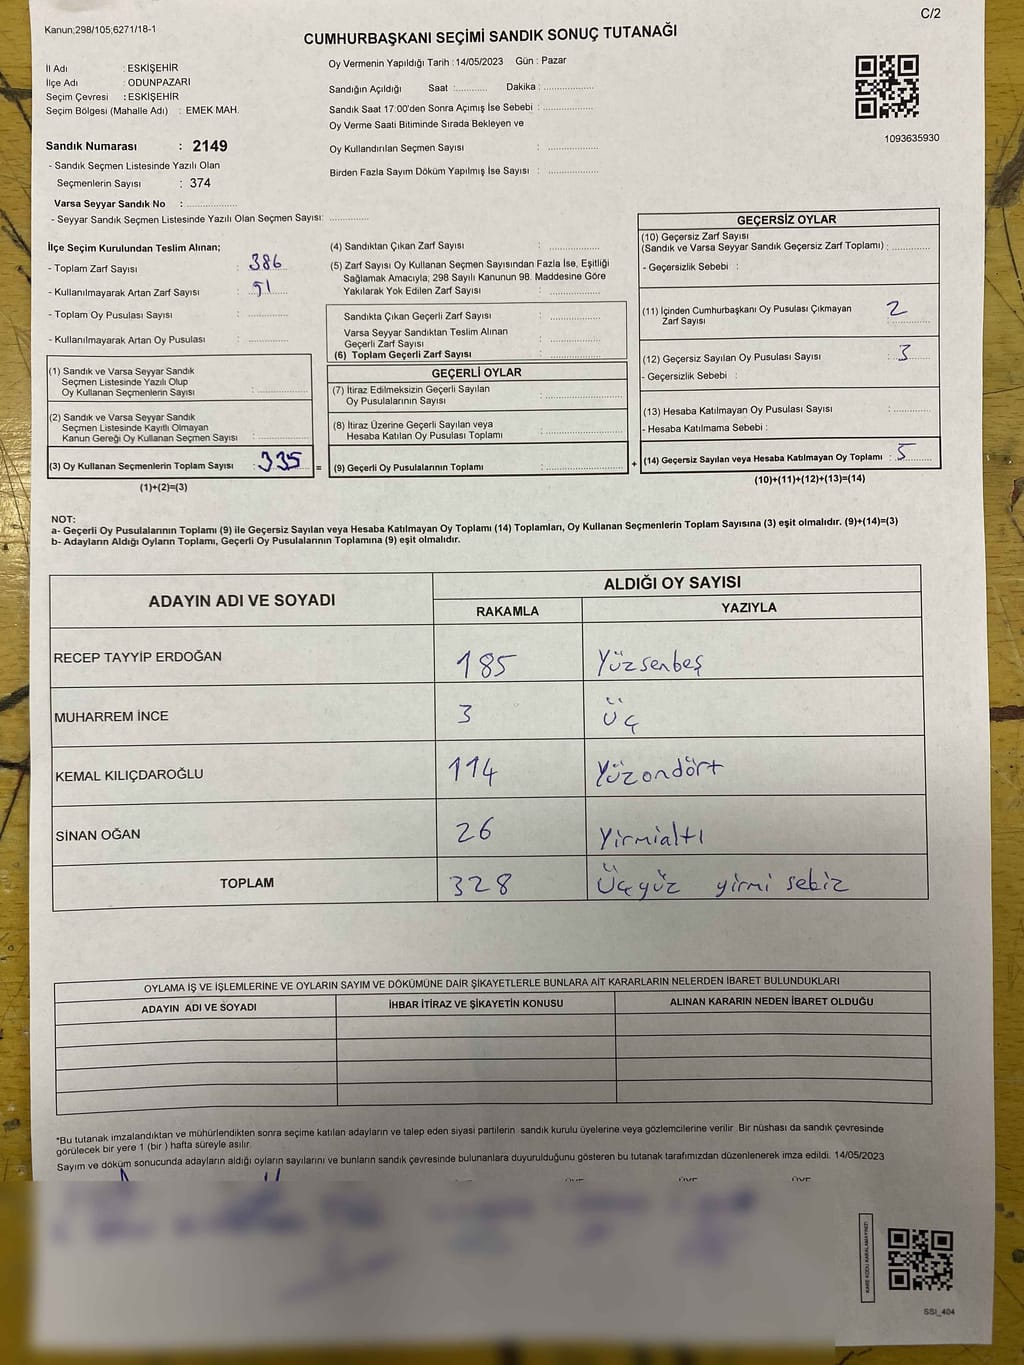 Kanun;298/105;6271/18-1
C/2
CUMHURBAŞKANI SEÇİMİ SANDIK SONUÇ TUTANAĞI
İl Adı : ESKİŞEHİR
İlçe Adı : ODUNPAZARI
Seçim Çevresi : ESKİŞEHİR
Seçim Bölgesi (Mahalle Adı) : EMEK MAH.
Sandık Numarası : 2149
- Sandık Seçmen Listesinde Yazılı Olan
Seçmenlerin Sayısı : 374
Varsa Seyyar Sandık No : ..............
- Seyyar Sandık Seçmen Listesinde Yazılı Olan Seçmen Sayısı: ............
Oy Vermenin Yapıldığı Tarih : 14/05/2023 Gün : Pazar
Sandığın Açıldığı Saat :........... Dakika : ..............
Sandık Saat 17:00'den Sonra Açımış İse Sebebi : ..............
Oy Verme Saati Bitiminde Sırada Bekleyen ve
Oy Kullandırılan Seçmen Sayısı : ..............
Birden Fazla Sayım Döküm Yapılmış İse Sayısı : ..............
1093635930
İlçe Seçim Kurulundan Teslim Alınan;
- Toplam Zarf Sayısı : 386
- Kullanılmayarak Artan Zarf Sayısı : 51
- Toplam Oy Pusulası Sayısı : ..............
- Kullanılmayarak Artan Oy Pusulası : ..............
(1) Sandık ve Varsa Seyyar Sandık
Seçmen Listesinde Yazılı Olup
Oy Kullanan Seçmenlerin Sayısı : ..............
(2) Sandık ve Varsa Seyyar Sandık
Seçmen Listesinde Kayıtlı Olmayan
Kanun Gereği Oy Kullanan Seçmen Sayısı : ..............
(3) Oy Kullanan Seçmenlerin Toplam Sayısı : 335 =
(1)+(2)=(3)
(4) Sandıktan Çıkan Zarf Sayısı : ..............
(5) Zarf Sayısı Oy Kullanan Seçmen Sayısından Fazla İse, Eşitliği
Sağlamak Amacıyla; 298 Sayılı Kanunun 98. Maddesine Göre
Yakılarak Yok Edilen Zarf Sayısı : ..............
Sandıkta Çıkan Geçerli Zarf Sayısı : ..............
Varsa Seyyar Sandıktan Teslim Alınan
Geçerli Zarf Sayısı : ..............
(6) Toplam Geçerli Zarf Sayısı : ..............
GEÇERLİ OYLAR
(7) İtiraz Edilmeksizin Geçerli Sayılan
Oy Pusulalarının Sayısı : ..............
(8) İtiraz Üzerine Geçerli Sayılan veya
Hesaba Katılan Oy Pusulası Toplamı : ..............
(9) Geçerli Oy Pusulalarının Toplamı : .............. +
GEÇERSİZ OYLAR
(10) Geçersiz Zarf Sayısı
(Sandık ve Varsa Seyyar Sandık Geçersiz Zarf Toplamı) : ............
- Geçersizlik Sebebi :
(11) İçinden Cumhurbaşkanı Oy Pusulası Çıkmayan
Zarf Sayısı : 2
(12) Geçersiz Sayılan Oy Pusulası Sayısı : 3
- Geçersizlik Sebebi :
(13) Hesaba Katılmayan Oy Pusulası Sayısı : ............
- Hesaba Katılmama Sebebi :
(14) Geçersiz Sayılan veya Hesaba Katılmayan Oy Toplamı : 5
(10)+(11)+(12)+(13)=(14)
NOT:
a- Geçerli Oy Pusulalarının Toplamı (9) ile Geçersiz Sayılan veya Hesaba Katılmayan Oy Toplamı (14) Toplamları, Oy Kullanan Seçmenlerin Toplam Sayısına (3) eşit olmalıdır. (9)+(14)=(3)
b- Adayların Aldığı Oyların Toplamı, Geçerli Oy Pusulalarının Toplamına (9) eşit olmalıdır.
ADAYIN ADI VE SOYADI ALDIĞI OY SAYISI
RAKAMLA YAZIYLA
RECEP TAYYİP ERDOĞAN 185 Yüzsenbeş
MUHARREM İNCE 3 Üç
KEMAL KILIÇDAROĞLU 114 Yüzondört
SİNAN OĞAN 26 Yirmialtı
TOPLAM 328 Üçyüz yirmi sebiz
OYLAMA İŞ VE İŞLEMLERİNE VE OYLARIN SAYIM VE DÖKÜMÜNE DAİR ŞİKAYETLERLE BUNLARA AİT KARARLARIN NELERDEN İBARET BULUNDUKLARI
ADAYIN ADI VE SOYADI İHBAR İTİRAZ VE ŞİKAYETİN KONUSU ALINAN KARARIN NEDEN İBARET OLDUĞU
*Bu tutanak imzalandıktan ve mühürlendikten sonra seçime katılan adayların ve talep eden siyasi partilerin sandık kurulu üyelerine veya gözlemcilerine verilir. Bir nüshası da sandık çevresinde
görülecek bir yere 1 (bir ) hafta süreyle asılır.
Sayım ve döküm sonucunda adayların aldığı oyların sayılarını ve bunların sandık çevresinde bulunanlara duyurulduğunu gösteren bu tutanak tarafımızdan düzenlenerek imza edildi. 14/05/2023
KARE KODU KARALAMAYINIZ!
SSİ_404